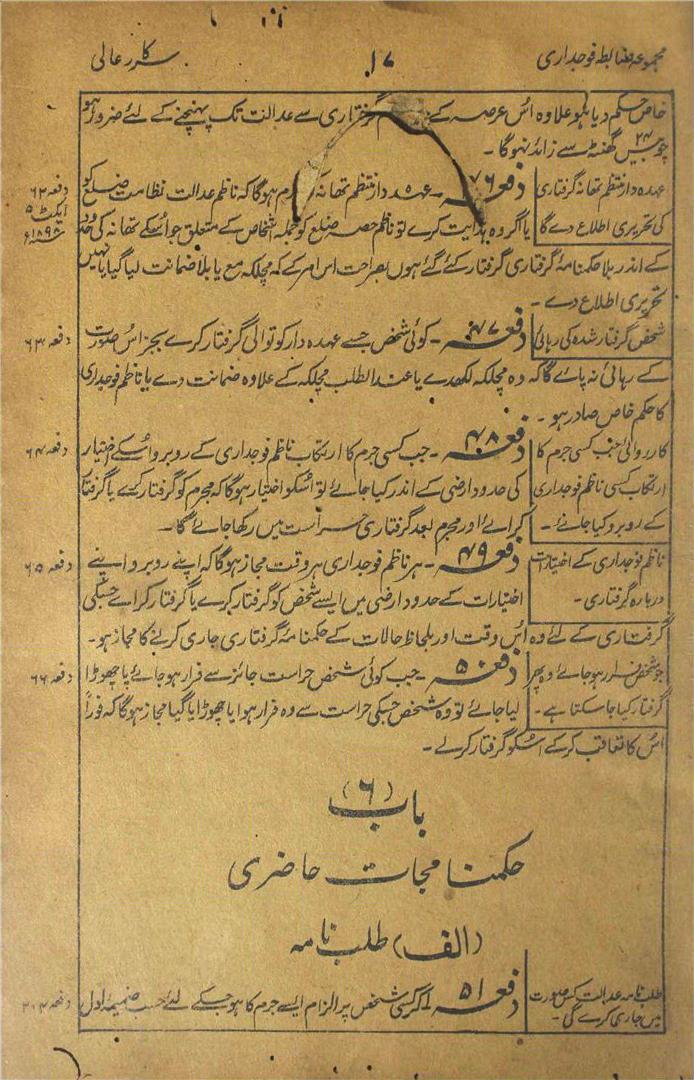 مجموعہ ضابطہ فوجداری
۱۷
سرکار عالی
خاص حکم دیا ہو علاوہ اُس عرصہ کے گرفتاری سے عدالت تک پہنچنے کے لئے ضرور ہو
چوبیس ۲۴ گھنٹہ سے زائد نہوگا ۔
عہدہ دار منتظم تھانہ گرفتاری
کی تحریری اطلاع دے گا
دفعہ ۴۶ ۔ عہدہ دار منتظم تھانہ لازم ہوگا کہ ناظم عدالت نظامت ضلع کو
دفعہ ۶۲
ایکٹ ۵
۱۸۹۸ء
یا اگر وہ ہدایت کرے تو ناظم حصہ ضلع کو جملہ اشخاص کے متعلق جو اُسکے تھانہ کی حدود
کے اندر بلا حکمنامۂ گرفتاری گرفتار کئے گئے ہوں بصراحت اس امر کے کہ مچلکہ مع یا بلا ضمانت لیا گیا یا نہیں
تحریری اطلاع دے ۔
شخص گرفتار شدہ کی رہائی
دفعہ ۴۷ ۔ کوئی شخص جسے عہدہ دار کوتوالی گرفتار کرے بجز اُس صورت
دفعہ ۶۳
کے رہائی نہ پاے گا کہ وہ مچلکہ لکھدے یا عند الطلب مچلکہ کے علاوہ ضمانت دے یا ناظم فوجداری
کا حکم خاص صادر ہو ۔
کارروائی جب کسی جرم کا
ارتکاب کسی ناظم فوجداری
کے روبرو کیا جائے ۔
دفعہ ۴۸ ۔ جب کسی جرم کا ارتکاب ناظم فوجداری کے روبرو اُسکے اختیار
دفعہ ۶۴
کی حدود ارضی کے اندر کیا جائے تو اُسکو اختیار ہوگا کہ مجرم کو گرفتار کرے یا گرفتار
کرائے اور مجرم بعد گرفتاری حراست میں رکھا جائے گا۔
ناظم فوجداری کے اختیارات
دربارہ گرفتاری ۔
دفعہ ۴۹ ۔ ہر ناظم فوجداری ہر وقت مجاز ہوگا کہ اپنے روبرو اپنے
دفعہ ۶۵
اختیارات کے حدود ارضی میں ایسے شخص کو گرفتار کرے یا گرفتار کراے جسکی
گرفتاری کے لئے وہ اُس وقت اور بلحاظ حالات کے حکمنامۂ گرفتاری جاری کرنے کا مجاز ہو۔
جو شخص فرار ہو جائے وہ پھر
گرفتار کیا جا سکتا ہے ۔
دفعہ ۵۰ ۔ جب کوئی شخص حراست جائز سے فرار ہو جائے یا چھوڑا
دفعہ ۶۶
لیا جائے تو وہ شخص جسکی حراست سے وہ فرار ہوا یا چھوڑایا گیا مجاز ہوگا کہ فوراً
اُس کا تعاقب کرکے اُسکو گرفتار کرلے ۔
باب (۶)
حکمنامجات حاضری
(الف) طلب نامہ
طلب نامہ عدالت کس صورت
میں جاری کرے گی ۔
دفعہ ۵۱ ۔ اگر کسی شخص پر الزام ایسے جرم کا ہو جسکے لئے حسب ضمیمۂ اول
دفعہ ۲۰۴